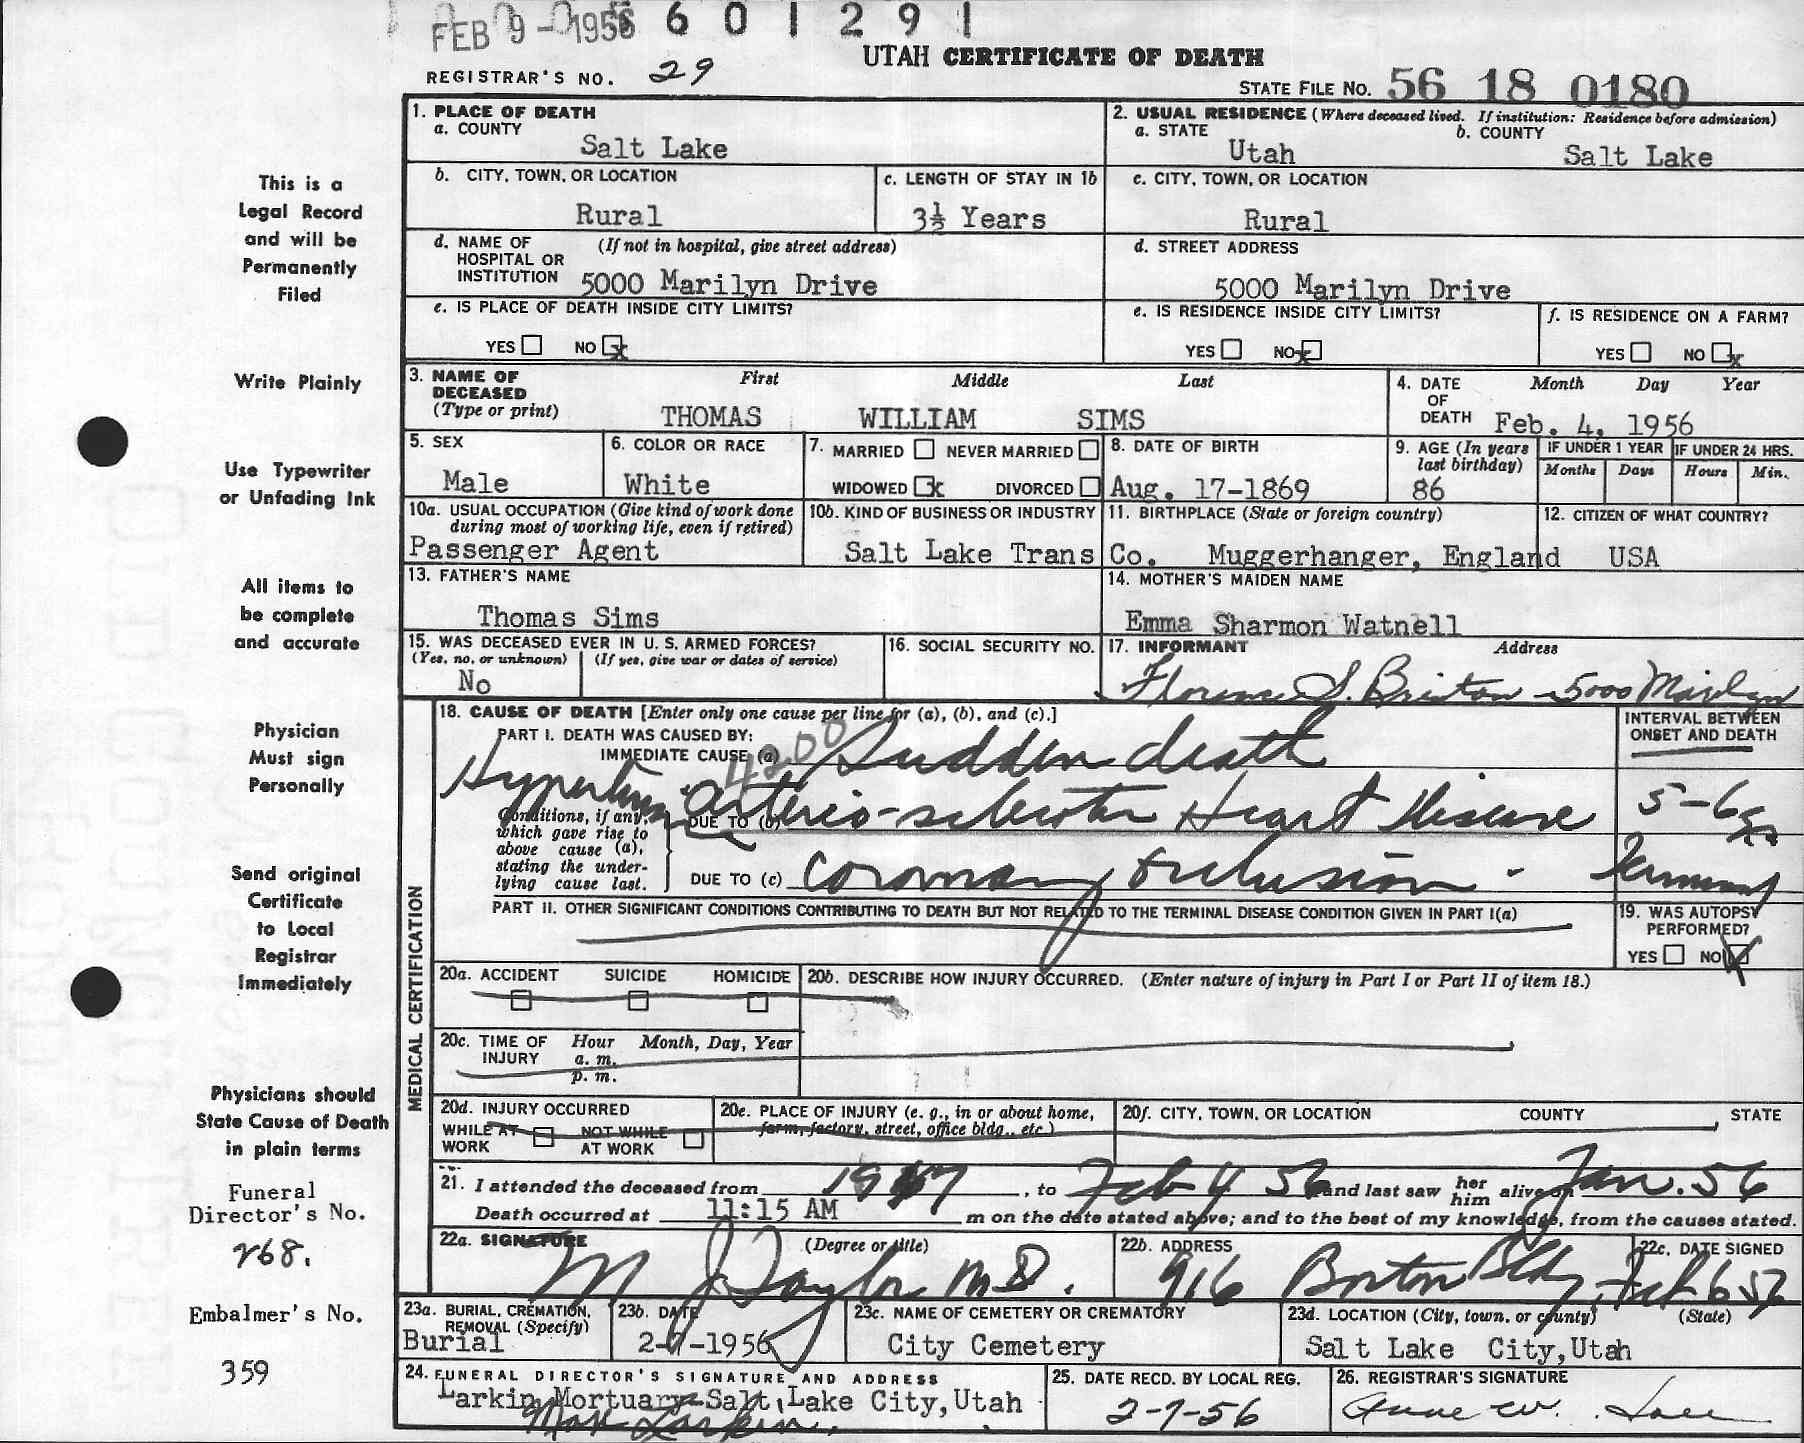 FEB 9 - 1956 6 0 1 2 9 1
UTAH CERTIFICATE OF DEATH
REGISTRAR'S NO. 29
STATE FILE NO. 56 18 0180
1. PLACE OF DEATH
a. COUNTY
Salt Lake
2. USUAL RESIDENCE (Where deceased lived. If institution: Residence before admission)
a. STATE b. COUNTY
Utah Salt Lake
b. CITY, TOWN, OR LOCATION
Rural
c. LENGTH OF STAY IN 1b
3½ Years
c. CITY, TOWN, OR LOCATION
Rural
d. NAME OF HOSPITAL OR INSTITUTION (If not in hospital, give street address)
5000 Marilyn Drive
d. STREET ADDRESS
5000 Marilyn Drive
e. IS PLACE OF DEATH INSIDE CITY LIMITS?
YES NO x
e. IS RESIDENCE INSIDE CITY LIMITS?
YES NO x
f. IS RESIDENCE ON A FARM?
YES NO x
3. NAME OF DECEASED (Type or print)
First Middle Last
THOMAS WILLIAM SIMS
4. DATE OF DEATH Month Day Year
Feb. 4, 1956
5. SEX
Male
6. COLOR OR RACE
White
7. MARRIED NEVER MARRIED
WIDOWED x DIVORCED
8. DATE OF BIRTH
Aug. 17-1869
9. AGE (In years last birthday)
86
IF UNDER 1 YEAR
Months Days
IF UNDER 24 HRS.
Hours Min.
10a. USUAL OCCUPATION (Give kind of work done during most of working life, even if retired)
Passenger Agent
10b. KIND OF BUSINESS OR INDUSTRY
Salt Lake Trans Co.
11. BIRTHPLACE (State or foreign country)
Muggerhanger, England
12. CITIZEN OF WHAT COUNTRY?
USA
13. FATHER'S NAME
Thomas Sims
14. MOTHER'S MAIDEN NAME
Emma Sharmon Watnell
15. WAS DECEASED EVER IN U. S. ARMED FORCES?
(Yes, no, or unknown) (If yes, give war or dates of service)
No
16. SOCIAL SECURITY NO.
17. INFORMANT Address
Florence S. Brixton - 5000 Marilyn
MEDICAL CERTIFICATION
18. CAUSE OF DEATH [Enter only one cause per line for (a), (b), and (c).]
PART I. DEATH WAS CAUSED BY:
IMMEDIATE CAUSE (a) 4200 Sudden death
INTERVAL BETWEEN ONSET AND DEATH
Conditions, if any, which gave rise to above cause (a), stating the underlying cause last.
DUE TO (b) Arterio-sclerotic Heart Disease
5-6 yrs
DUE TO (c) Coronary Occlusion - Terminal
PART II. OTHER SIGNIFICANT CONDITIONS CONTRIBUTING TO DEATH BUT NOT RELATED TO THE TERMINAL DISEASE CONDITION GIVEN IN PART I(a)
19. WAS AUTOPSY PERFORMED?
YES NO X
20a. ACCIDENT SUICIDE HOMICIDE
20b. DESCRIBE HOW INJURY OCCURRED. (Enter nature of injury in Part I or Part II of item 18.)
20c. TIME OF INJURY Hour a. m. p. m. Month, Day, Year
20d. INJURY OCCURRED
WHILE AT WORK NOT WHILE AT WORK
20e. PLACE OF INJURY (e. g., in or about home, farm, factory, street, office bldg., etc.)
20f. CITY, TOWN, OR LOCATION COUNTY STATE
21. I attended the deceased from 1947, to Feb 4 56 and last saw her him alive on Jan. 56
Death occurred at 11:15 AM m on the date stated above; and to the best of my knowledge, from the causes stated.
22a. SIGNATURE (Degree or title)
M J Taylor M.D.
22b. ADDRESS
916 Boston Bldg.
22c. DATE SIGNED
Feb 6 56
23a. BURIAL, CREMATION, REMOVAL (Specify)
Burial
23b. DATE
2-7-1956
23c. NAME OF CEMETERY OR CREMATORY
City Cemetery
23d. LOCATION (City, town, or county) (State)
Salt Lake City, Utah
24. FUNERAL DIRECTOR'S SIGNATURE AND ADDRESS
Larkin Mortuary Salt Lake City, Utah
Max Larkin
25. DATE RECD. BY LOCAL REG.
2-7-56
26. REGISTRAR'S SIGNATURE
Anne W.
This is a
Legal Record
and will be
Permanently
Filed
Write Plainly
Use Typewriter
or Unfading Ink
All items to
be complete
and accurate
Physician
Must sign
Personally
Send original
Certificate
to Local
Registrar
Immediately
Physicians should
State Cause of Death
in plain terms
Funeral
Director's No.
268.
Embalmer's No.
359